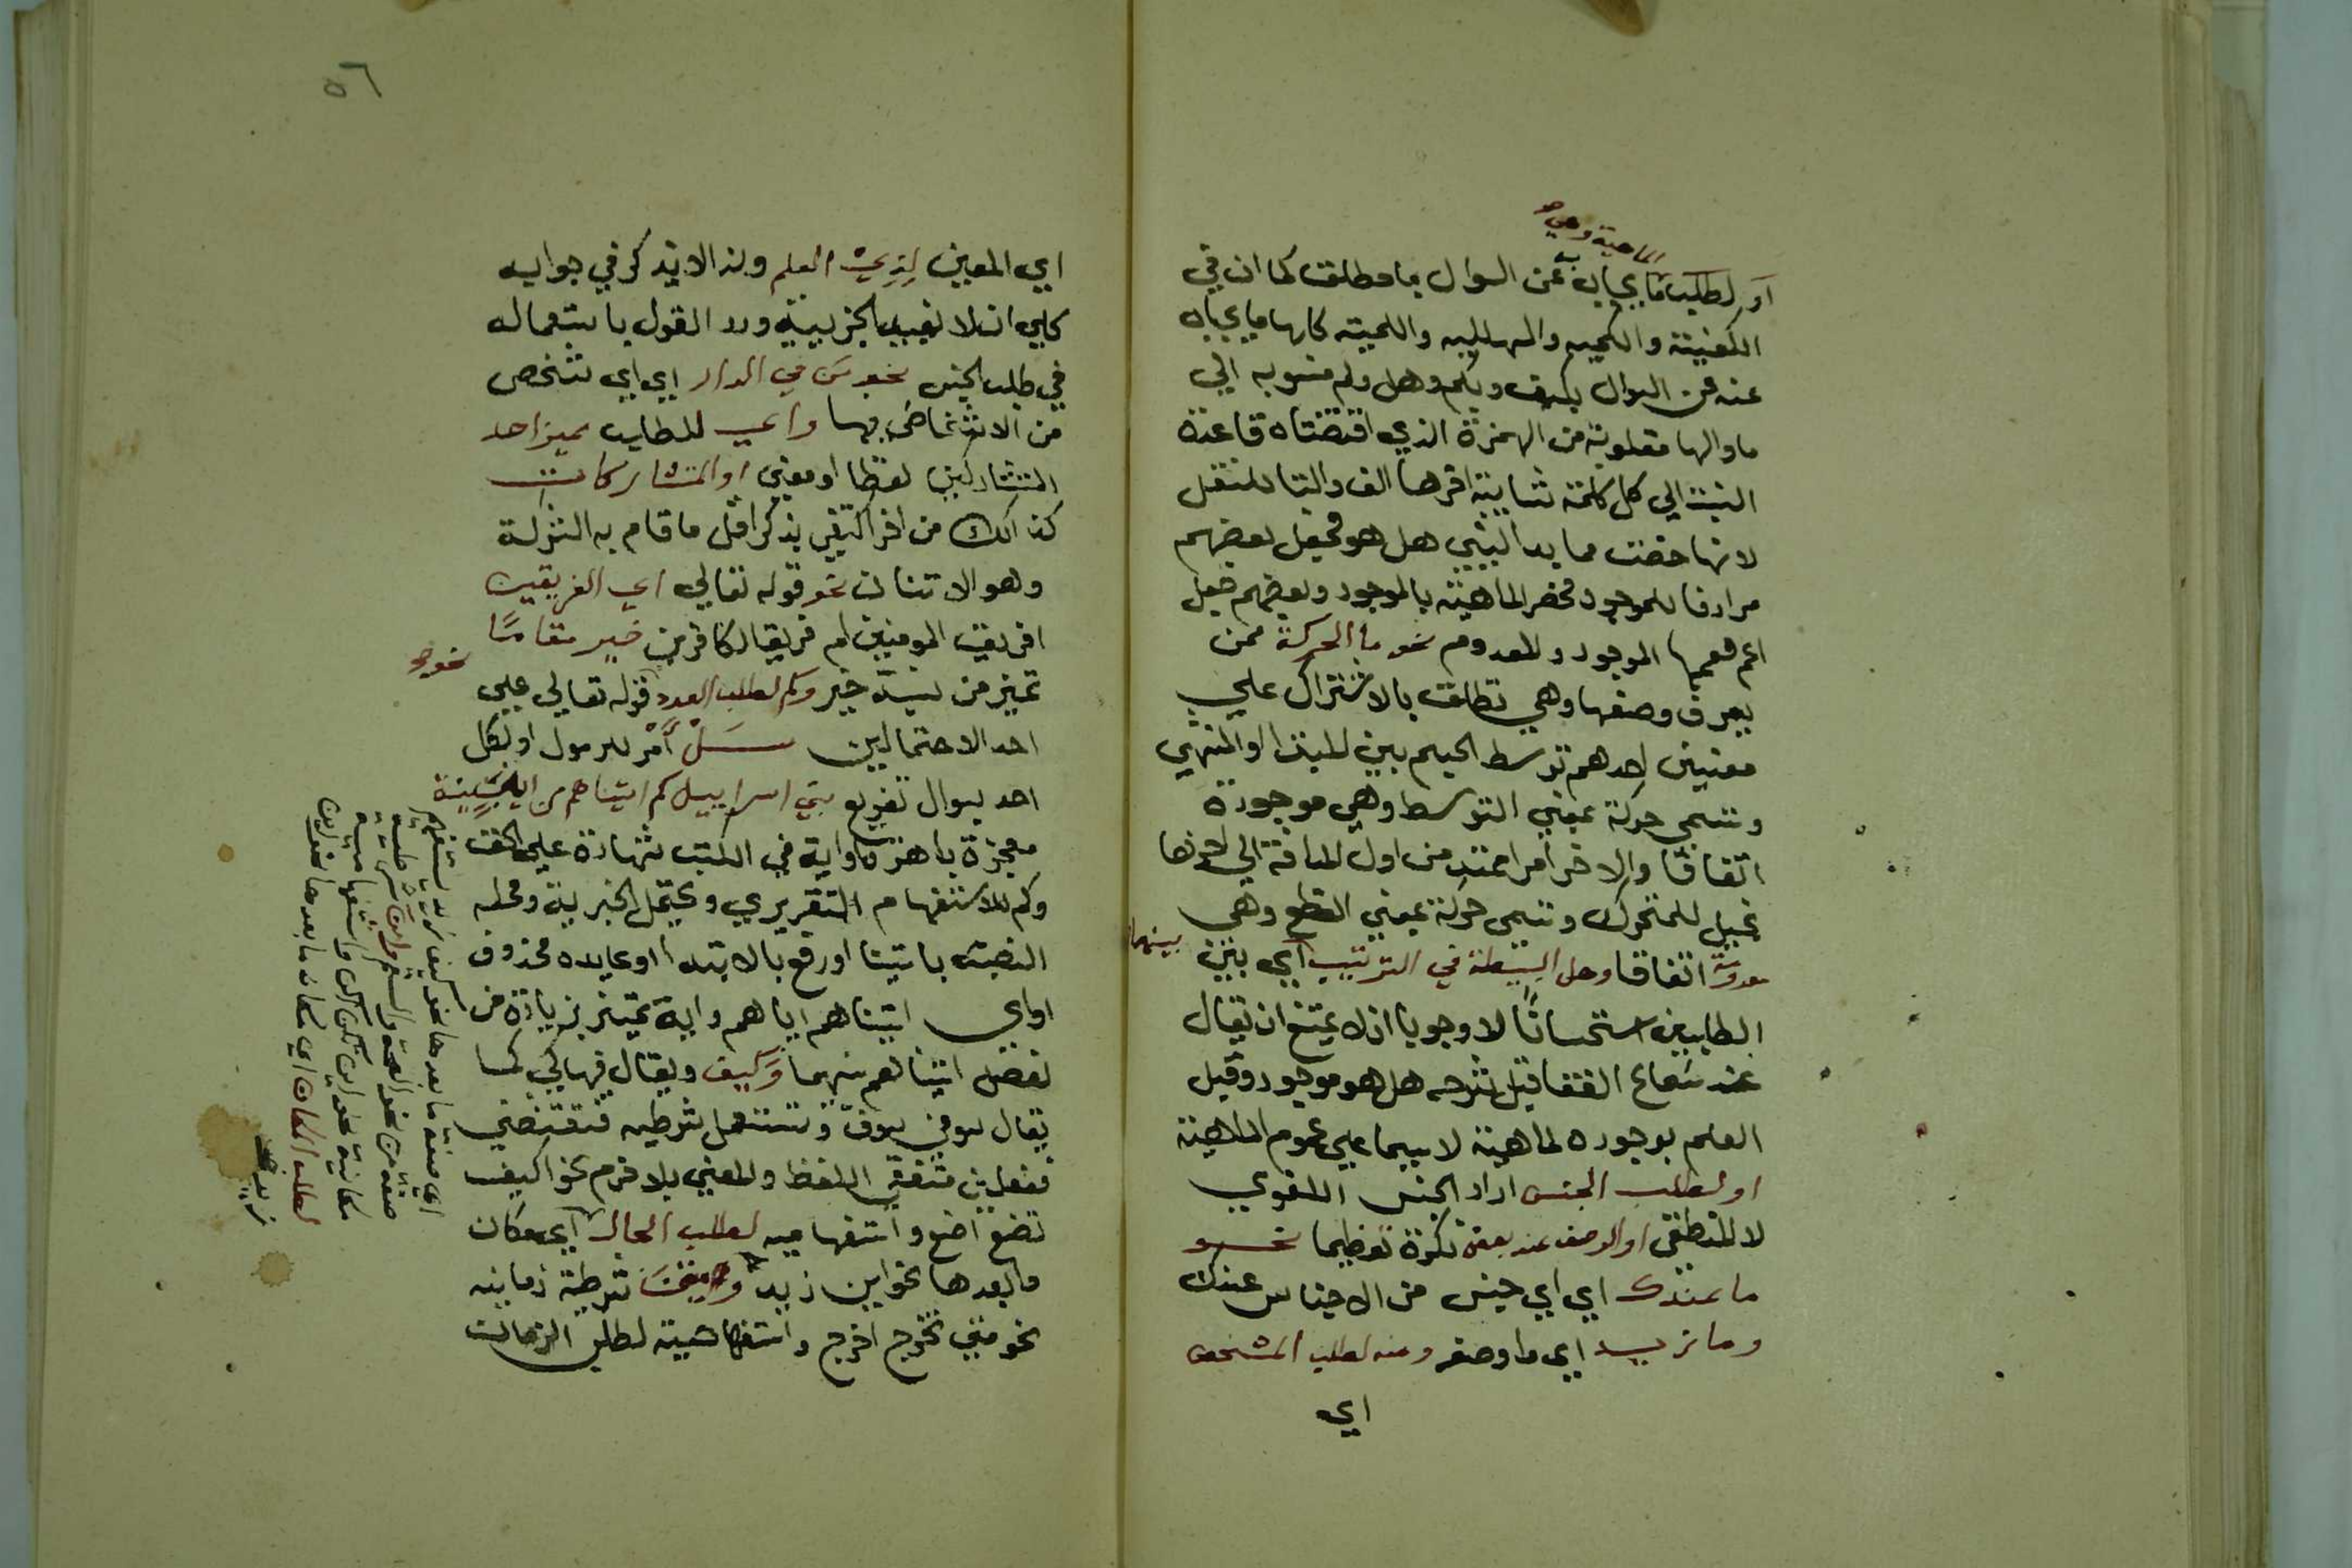 الماهية وهي صح
او لطلب ما يجاب به عن السوال بما مطلقا كما ان في
الكيفيته والكميه والهلليه واللميته كلها ما يجاب
عنه من السوال بكيف وبكم وهل ولم منسوبه الي
ما والها مقلوبة من الهمزة الذي اقتضتاه قاعدة
النسبة الي كل كلمة ثنايية اخرها الف والتا للنقل
لانها خصت بما به الشي هل هو فجعل بعضهم
مرادفا للموجود فخص الماهية بالموجود وبعضهم جعل
اعم فعمها الموجود والمعدوم نحو ما الحركة ممن
يعرف وصفها وهي تطلق بالاشتراك علي
معنيين احدهم توسط الجسم بين المبتدا والمنتهي
وتسمي حركة بمعني التوسط وهي موجودة
اتفاقا والاخر امرا ممتد من اول المسافة الي اخرها
تخيل للمتحرك وتسمي حركة بمعني القطع وهي
معدومة اتفاقا وهل البسيطة في الترتيب اي بين بينهما
الطلبين استحسانا لا وجوبا اذ لا يمتنع ان يقال
عند سماع العنقا قبل شرحه هل هو موجود وقبل
العلم بوجوده لماهية لا سيما علي عموم الماهية
او لطلب الجنس اراد الجنس اللغوي
لا المنطقي او الوصف عند بعض نكرة تعظيما نحو
ما عندك اي اي جنس من الاجناس عندك
وما زيد اي ما وصفه ومنه لطلب المشخص
اي
٥٦
اي المعين لذي العلم ولذا لا يذكر في جوابه
كلي ان لا تفيد الجزيية ورد القول باستعماله
في طلب الجنس نحو من في الدار اي اي شخص
من الاشخاص بها واي للطلب بميز احد
المتشاركين لفظا او معني او المتشاركات
كذالك من اخر اكتفي بذكر اقل ما قام به الشركة
وهو الاتنان نحو قوله تعالي اي الفريقين
افريق المومنين ام فريق الكافرين خير مقاما
تمييز من نسبة خير وكم لطلب العدد نحو قوله تعالي علي
احد الاحتمالين سل امر للرسول او لكل
احد سوال تفريع بني اسراييل كم اتيناهم من اية بينة
معجزة باهرة او اية في الكتب شهادة علي الحق
وكم للاستفهام التقريري ويحتمل الخبرية ومحله
النصب باتينا او رفع بالابتدا او عايده محذوف
او اي اتيناهم اياهم واية تمييز بزيادة من
لفصل اتيناهم بينهما وكيف ويقال فيها كي كما
يقال سو في سوف وتستعمل شرطيه فتقتضي
فعلين متفقي اللفظ والمعني بلا جزم نحو كيف
تصنع اصنع واستفهاميه لطلب الحال اي مكان
ما بعدها نحو اين زيد ومتي شرطية زمانيه
نحو متي تخرج اخرج واستفهامية لطلب الزمان